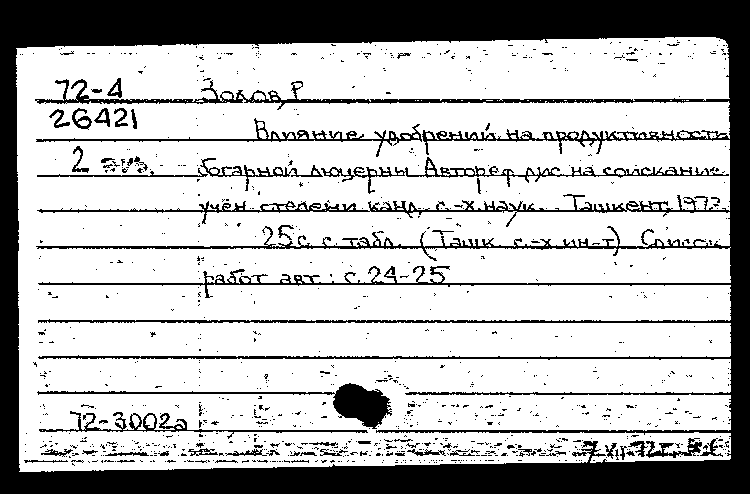 72-4 Золов, Р
26421 Влияние удобрений на продуктивность
2 экз. богарной люцерны Автореф дис на соискание
учён степени канд. с.-х. наук. Ташкент, 1972.
25с. с табл. (Ташк с.-х ин-т) Список
работ авт: с. 24-25
72-3002а
7 XII-72г.